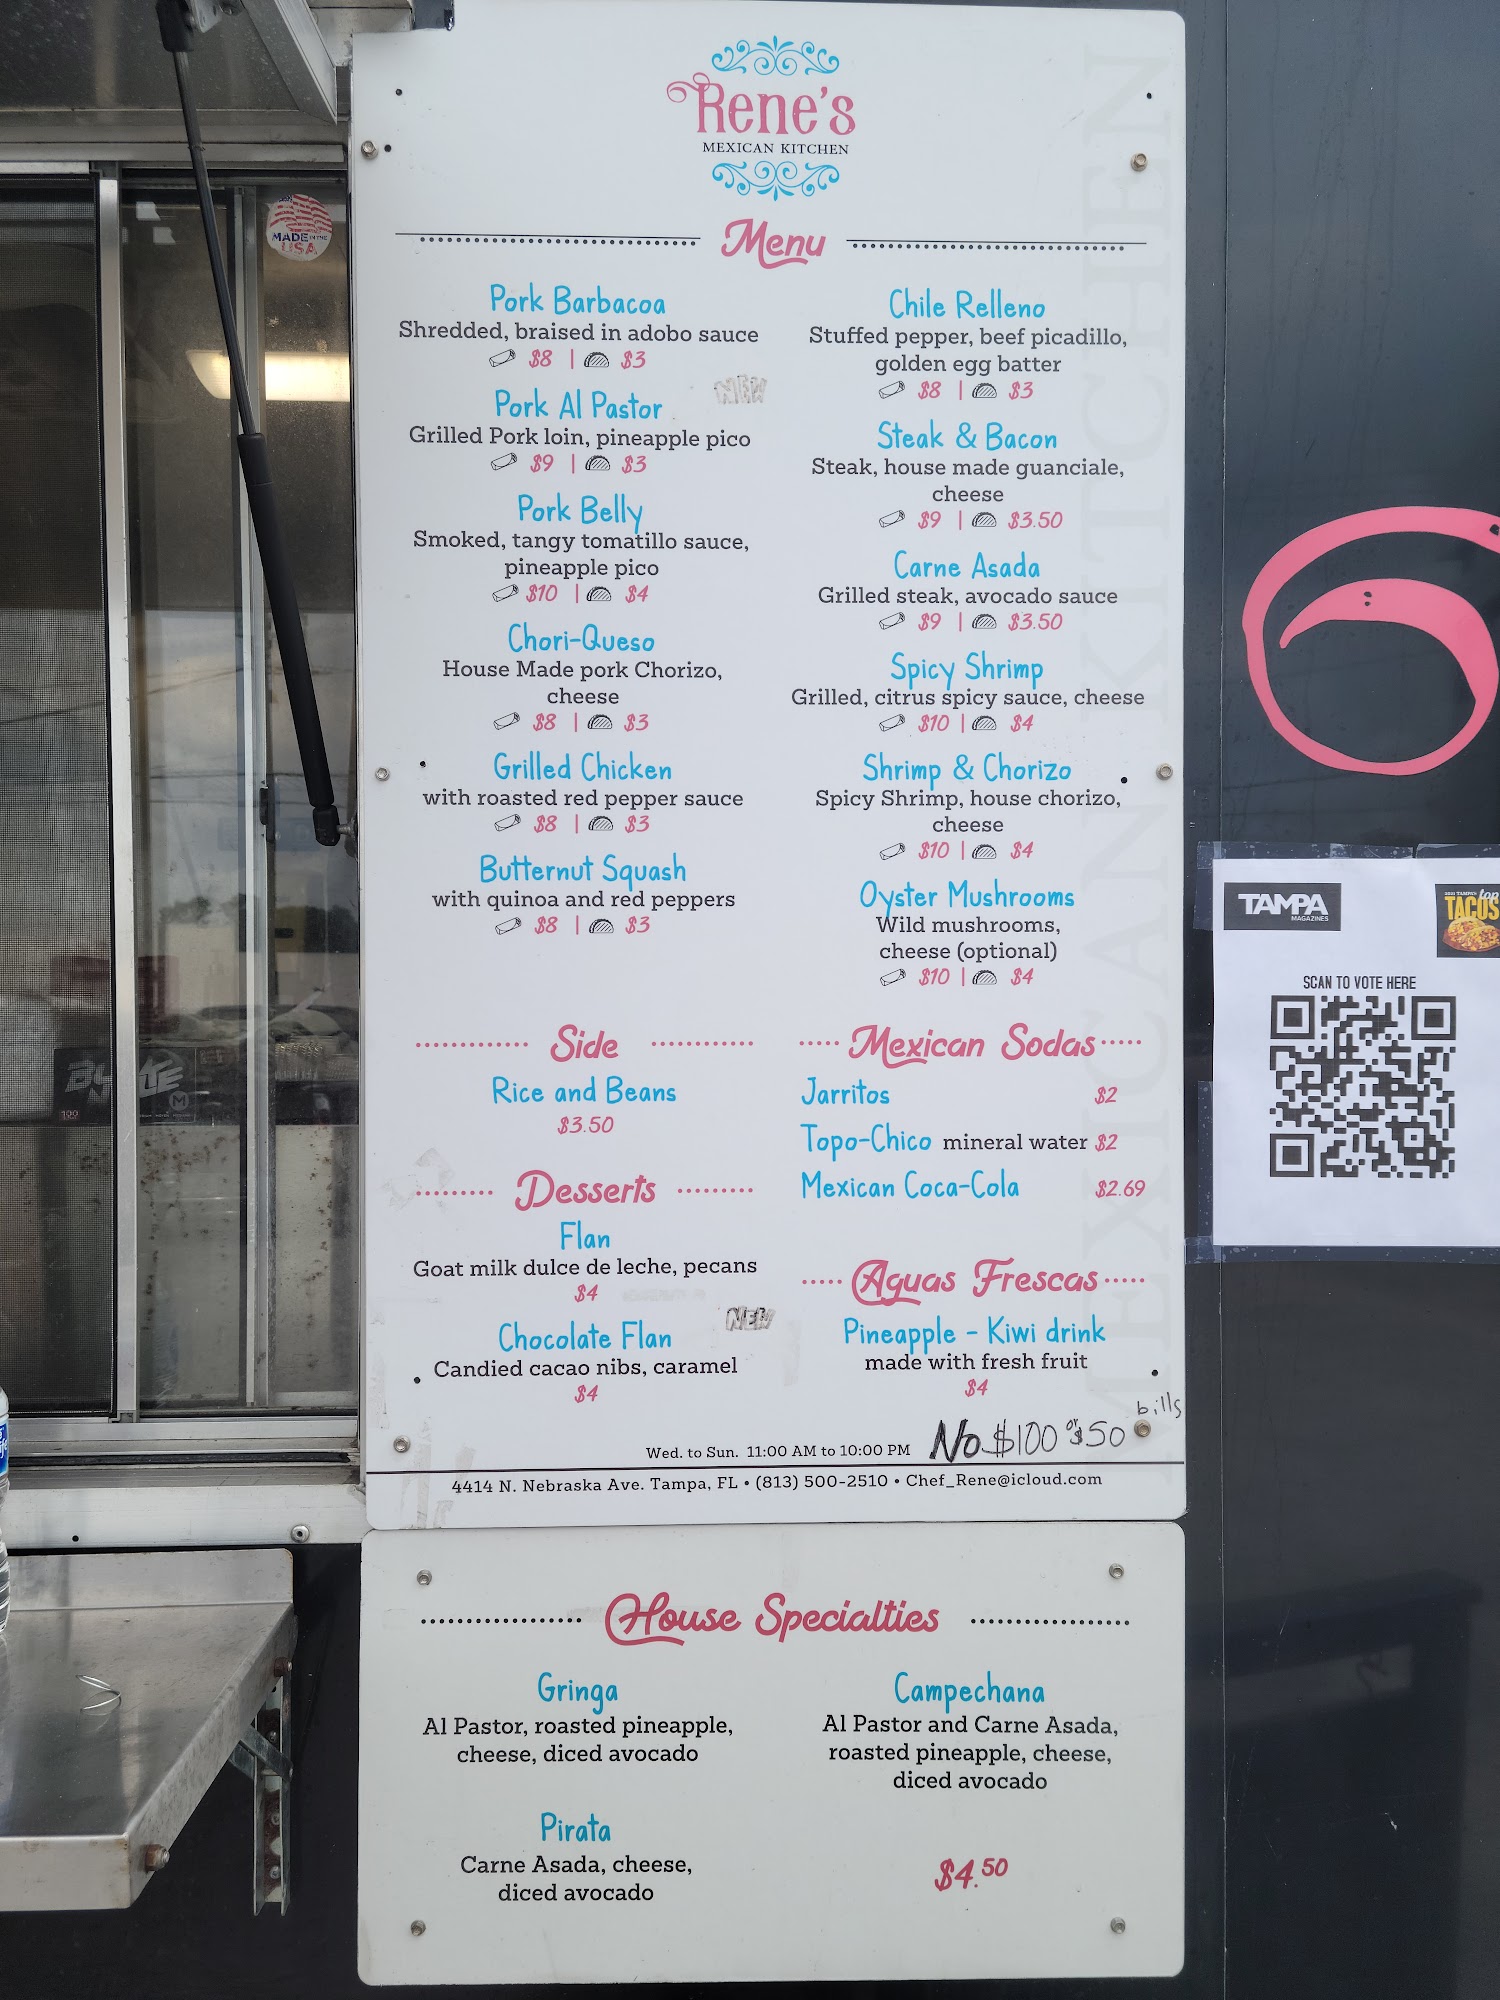 Rene's
MEXICAN KITCHEN
Menu
Pork Barbacoa
Shredded, braised in adobo sauce
$8 | $3
NEW
Pork Al Pastor
Grilled Pork loin, pineapple pico
$9 | $3
Pork Belly
Smoked, tangy tomatillo sauce,
pineapple pico
$10 | $4
Chori-Queso
House Made pork Chorizo,
cheese
$8 | $3
Grilled Chicken
with roasted red pepper sauce
$8 | $3
Butternut Squash
with quinoa and red peppers
$8 | $3
Chile Relleno
Stuffed pepper, beef picadillo,
golden egg batter
$8 | $3
Steak & Bacon
Steak, house made guanciale,
cheese
$9 | $3.50
Carne Asada
Grilled steak, avocado sauce
$9 | $3.50
Spicy Shrimp
Grilled, citrus spicy sauce, cheese
$10 | $4
Shrimp & Chorizo
Spicy Shrimp, house chorizo,
cheese
$10 | $4
Oyster Mushrooms
Wild mushrooms,
cheese (optional)
$10 | $4
Side
Rice and Beans
$3.50
Desserts
Flan
Goat milk dulce de leche, pecans
$4
NEW
Chocolate Flan
Candied cacao nibs, caramel
$4
Mexican Sodas
Jarritos $2
Topo-Chico mineral water $2
Mexican Coca-Cola $2.69
Aguas Frescas
Pineapple - Kiwi drink
made with fresh fruit
$4
Wed. to Sun. 11:00 AM to 10:00 PM
No $100 or $50 bills
4414 N. Nebraska Ave. Tampa, FL • (813) 500-2510 • Chef_Rene@icloud.com
MEXICAN KITCHEN
House Specialties
Gringa
Al Pastor, roasted pineapple,
cheese, diced avocado
Pirata
Carne Asada, cheese,
diced avocado
Campechana
Al Pastor and Carne Asada,
roasted pineapple, cheese,
diced avocado
$4.50
MADE IN THE
USA
TAMPA
MAGAZINES
top
TACOS
SCAN TO VOTE HERE